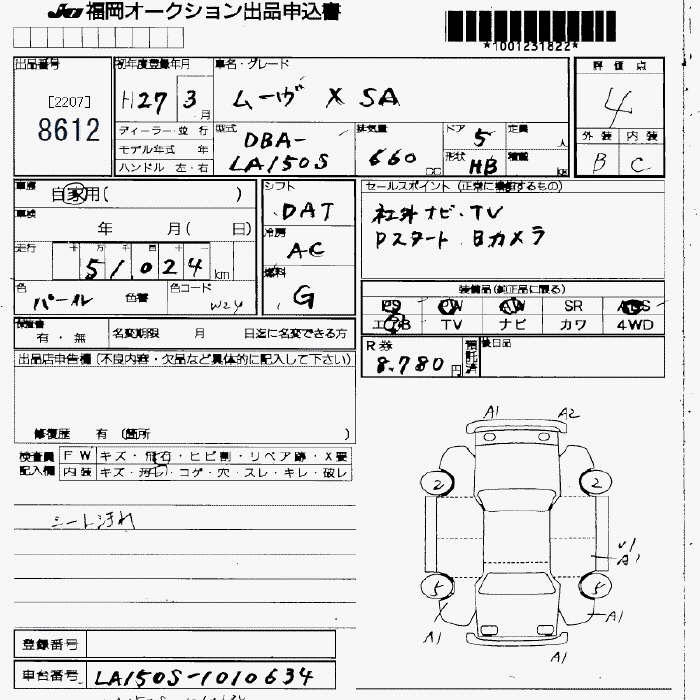 JU 福岡オークション出品申込書
*1001231822*
出品番号 初年度登録年月 車名・グレード 評価点
[2207] 8612
H27 3月 ムーヴ X SA 4
ディーラー・並行 型式 排気量 ドア 定員 外装 内装
モデル年式 年 DBA- 5 人
ハンドル 左・右 LA150S 660 cc 形状 HB 積載 B C
車歴 自家用( ) シフト セールスポイント(正常に機能するもの)
DAT 社外ナビ・TV
車検 年 月( 日) 冷房 AC Pスタート Bカメラ
走行 十 万 千 百 十 一
51,024 km 燃料 G
色 パール 色替 色コード W24 装備品(純正品に限る)
PS PW AW SR ABS
エアB TV ナビ カワ 4WD
有・無 名変期限 月 日迄に名変できる方
R券 8,780円 預託済 後日品
出品店申告欄(不良内容・欠品など具体的に記入して下さい)
修復歴 有 (箇所 )
検査員 FW キズ・飛石・ヒビ割・リペア跡・X要
記入欄 内装 キズ・汚レ・コゲ・穴・スレ・キレ・破レ
シート汚れ
A1 A2
2 2
A1
5 5
A1 A1
A1
登録番号
車台番号 LA150S-1010634